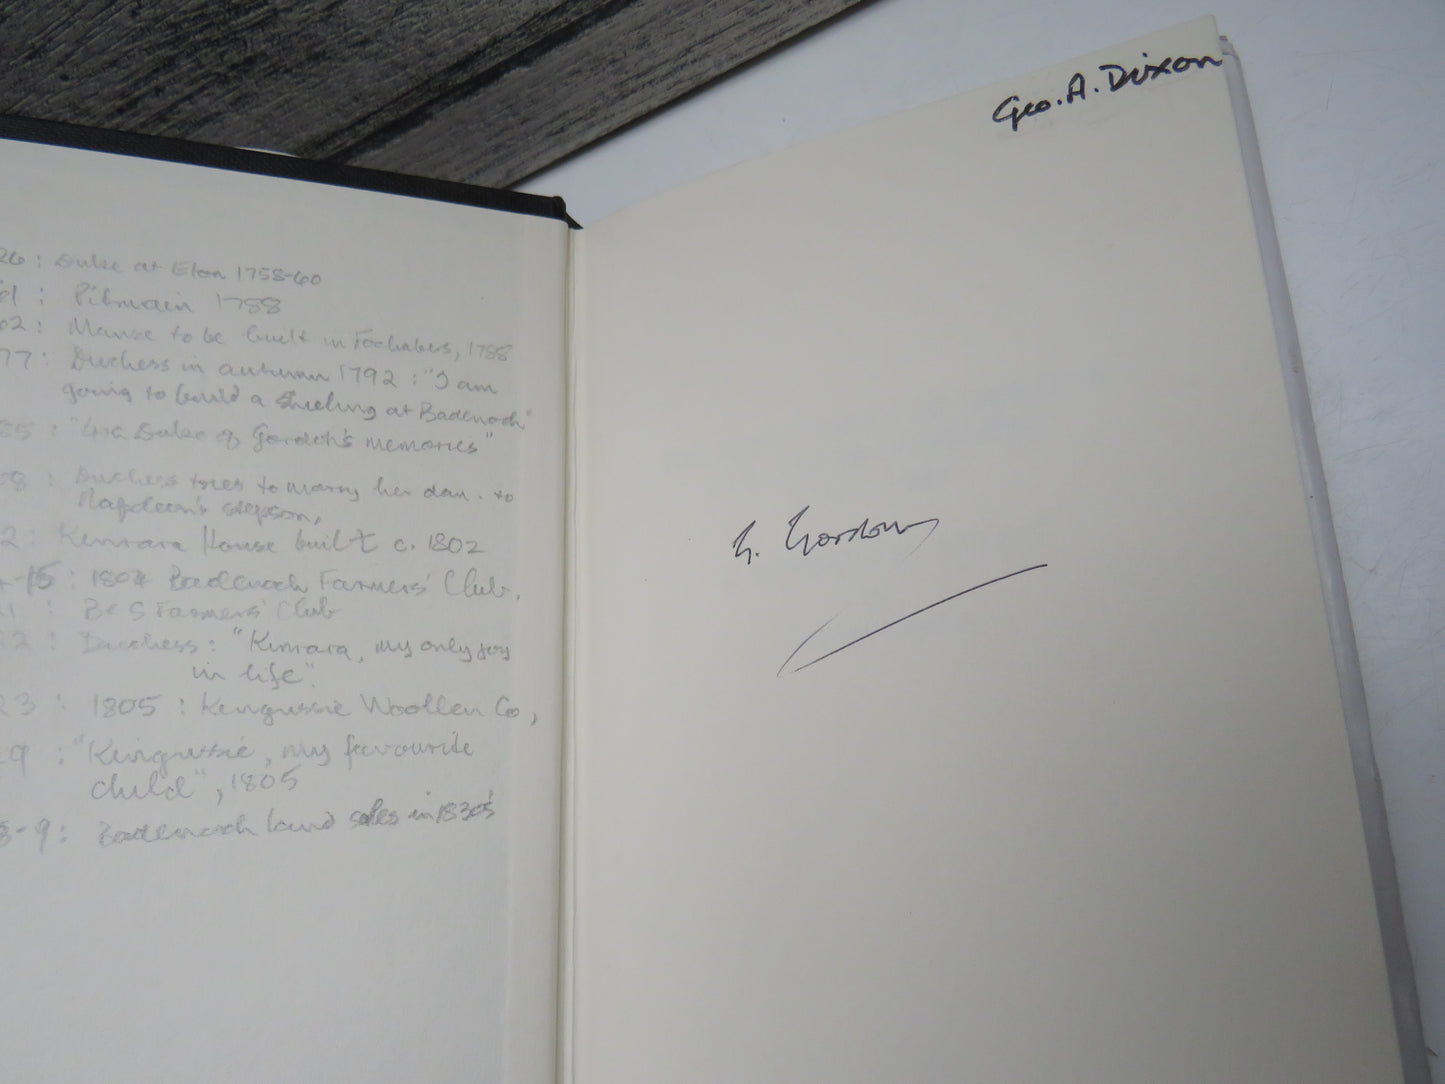 26 : Duke at Eton 1758-60
: Pitmain 1788
02 : Manse to be built in Fochabers, 1788
77 : Duchess in autumn 1792 : "I am
going to build a shieling at Badenoch"
85 : Duke of Gordon's memories"
: Duchess tries to marry her dau. to
Napoleon's stepson,
2 : Kinrara House built c. 1802
-15 : 1804 Badenoch Farmers' Club,
: B & S Farmers' Club
2 : Duchess : "Kinrara, my only joy
in life".
23 : 1805 : Kingussie Woollen Co,
9 : "Kingussie, my favourite
child", 1805
8-9 : Badenoch land sales in 1830s
Geo. A. Dixon
G. Gordon